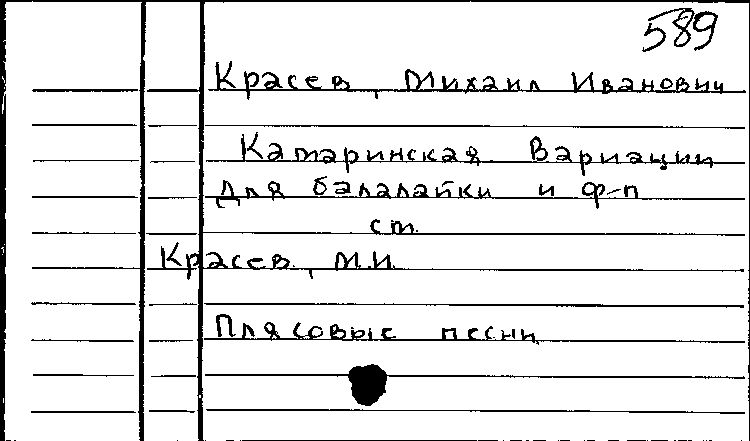 589
Красев, Михаил Иванович
Камаринская. Вариации
для балалайки и ф-п
ст.
Красев, М.И.
Плясовые песни